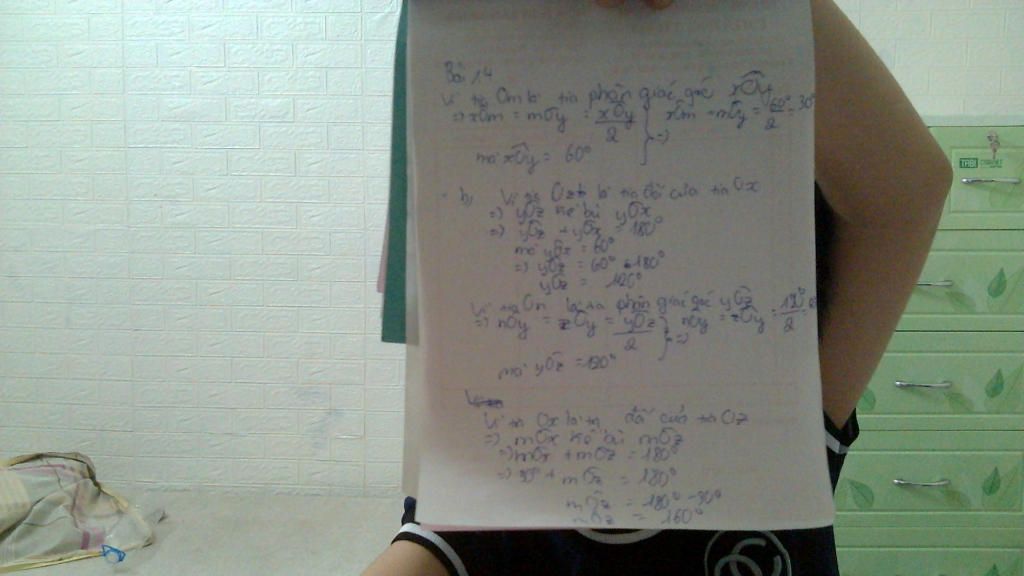 Bài 14
Vì tia Om là tia phân giác góc xOy
=> xOm = mOy = xOy/2 } => xOm = mOy = 60°/2 = 30°
mà xOy = 60°
b, Vì tia Oz là tia đối của tia Ox
=> yOz kề bù yOx
=> yOz + yOx = 180°
mà yOx = 60°
=> yOz = 60° 180°
yOz = 120°
Vì tia On là tia phân giác góc yOz
=> nOy = zOy = yOz/2 } => nOy = zOy = 120°/2 =
mà yOz = 120°
Vì tia Ox là tia đối của tia Oz
=> mOx kề bù mOz
=> mOx + mOz = 180°
=> 30° + mOz = 180°
mOz = 180° - 30°
mOz = 160°
TABI